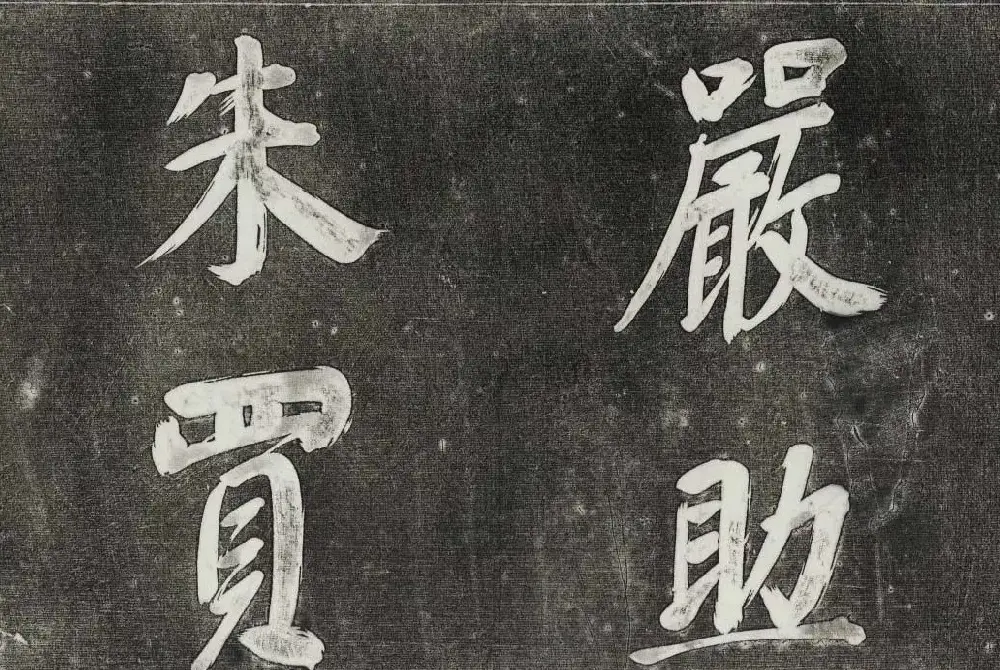 嚴助
朱買